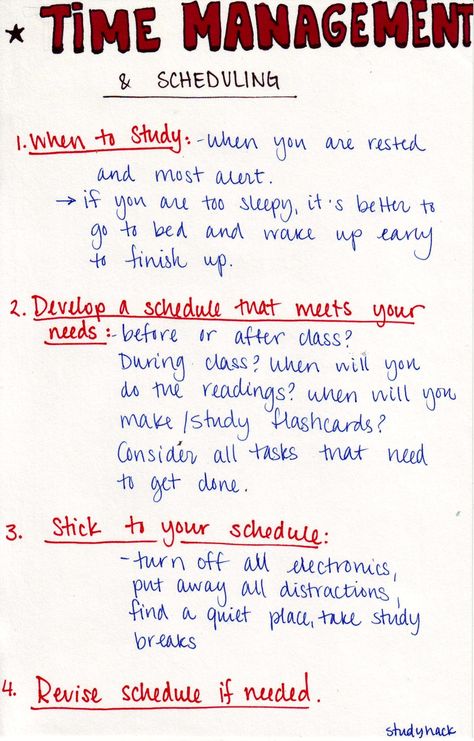 ★ TIME MANAGEMENT
& SCHEDULING
1. When to Study: - when you are rested
and most alert.
→ if you are too sleepy, it's better to
go to bed and wake up early
to finish up.
2. Develop a schedule that meets your
needs: - before or after class?
During class? When will you
do the readings? When will you
make/study flashcards?
Consider all tasks that need
to get done.
3. Stick to your schedule:
- turn off all electronics,
put away all distractions,
find a quiet place, take study
breaks
4. Revise schedule if needed.
studyhack